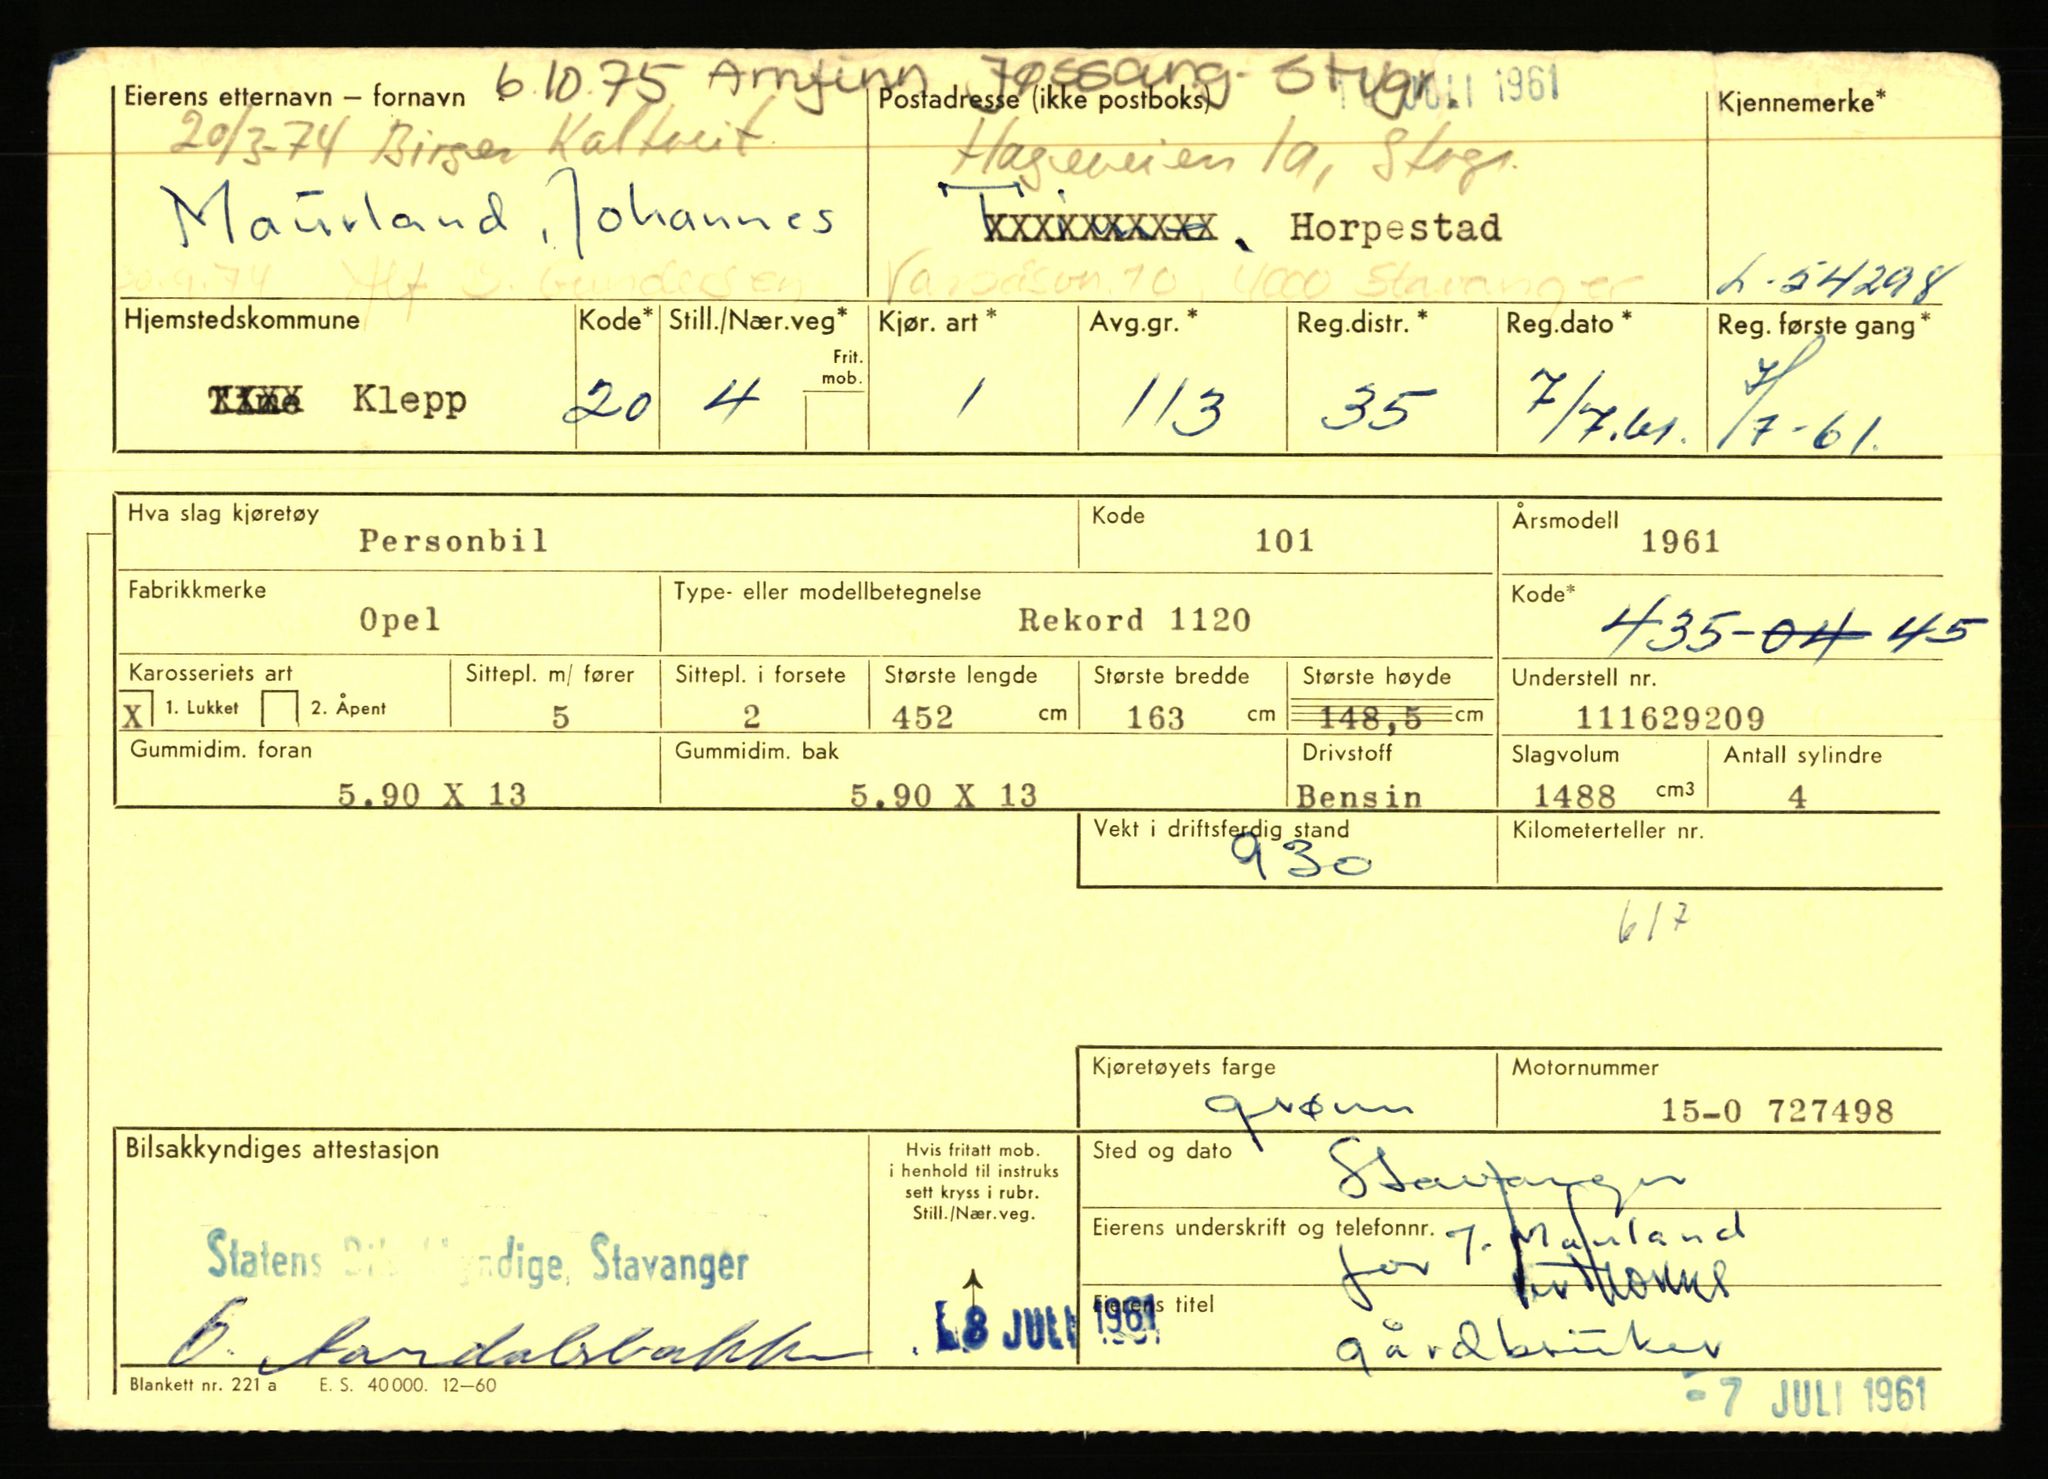 6.10.75 Arnfinn Jøssang - Stvgr.
JULI 1961
Eierens etternavn – fornavn
Postadresse (ikke postboks)
Kjennemerke*
20/3-74 Birger Kaltveit
Hageveien 1a, Stvgr.
Maurland, Johannes
XXXXXXXXXX. Horpestad
Alf B. Gundersen
10, 4000 Stavanger
L-54298
Hjemstedskommune
Kode*
Still./Nær.veg*
Kjør. art*
Avg.gr.*
Reg.distr.*
Reg.dato*
Reg. første gang*
Frit. mob.
Time Klepp
20
4
1
113
35
7/7.61.
7/7-61.
Hva slag kjøretøy
Personbil
Kode
101
Årsmodell
1961
Fabrikkmerke
Opel
Type- eller modellbetegnelse
Rekord 1120
Kode*
435-04 45
Karosseriets art
X 1. Lukket
2. Åpent
Sittepl. m/ fører
5
Sittepl. i forsete
2
Største lengde
452 cm
Største bredde
163 cm
Største høyde
148,5 cm
Understell nr.
111629209
Gummidim. foran
5.90 X 13
Gummidim. bak
5.90 X 13
Drivstoff
Bensin
Slagvolum
1488 cm3
Antall sylindre
4
Vekt i driftsferdig stand
930
Kilometerteller nr.
617
Kjøretøyets farge
grønn
Motornummer
15-0 727498
Bilsakkyndiges attestasjon
Hvis fritatt mob.
i henhold til instruks
sett kryss i rubr.
Still./Nær.veg.
Sted og dato
Stavanger
Eierens underskrift og telefonnr.
for J. Maurland
Statens Bilsakkyndige, Stavanger
Eierens titel
gårdbruker
8 JULI 1961
Blankett nr. 221 a E. S. 40000. 12–60
-7 JULI 1961